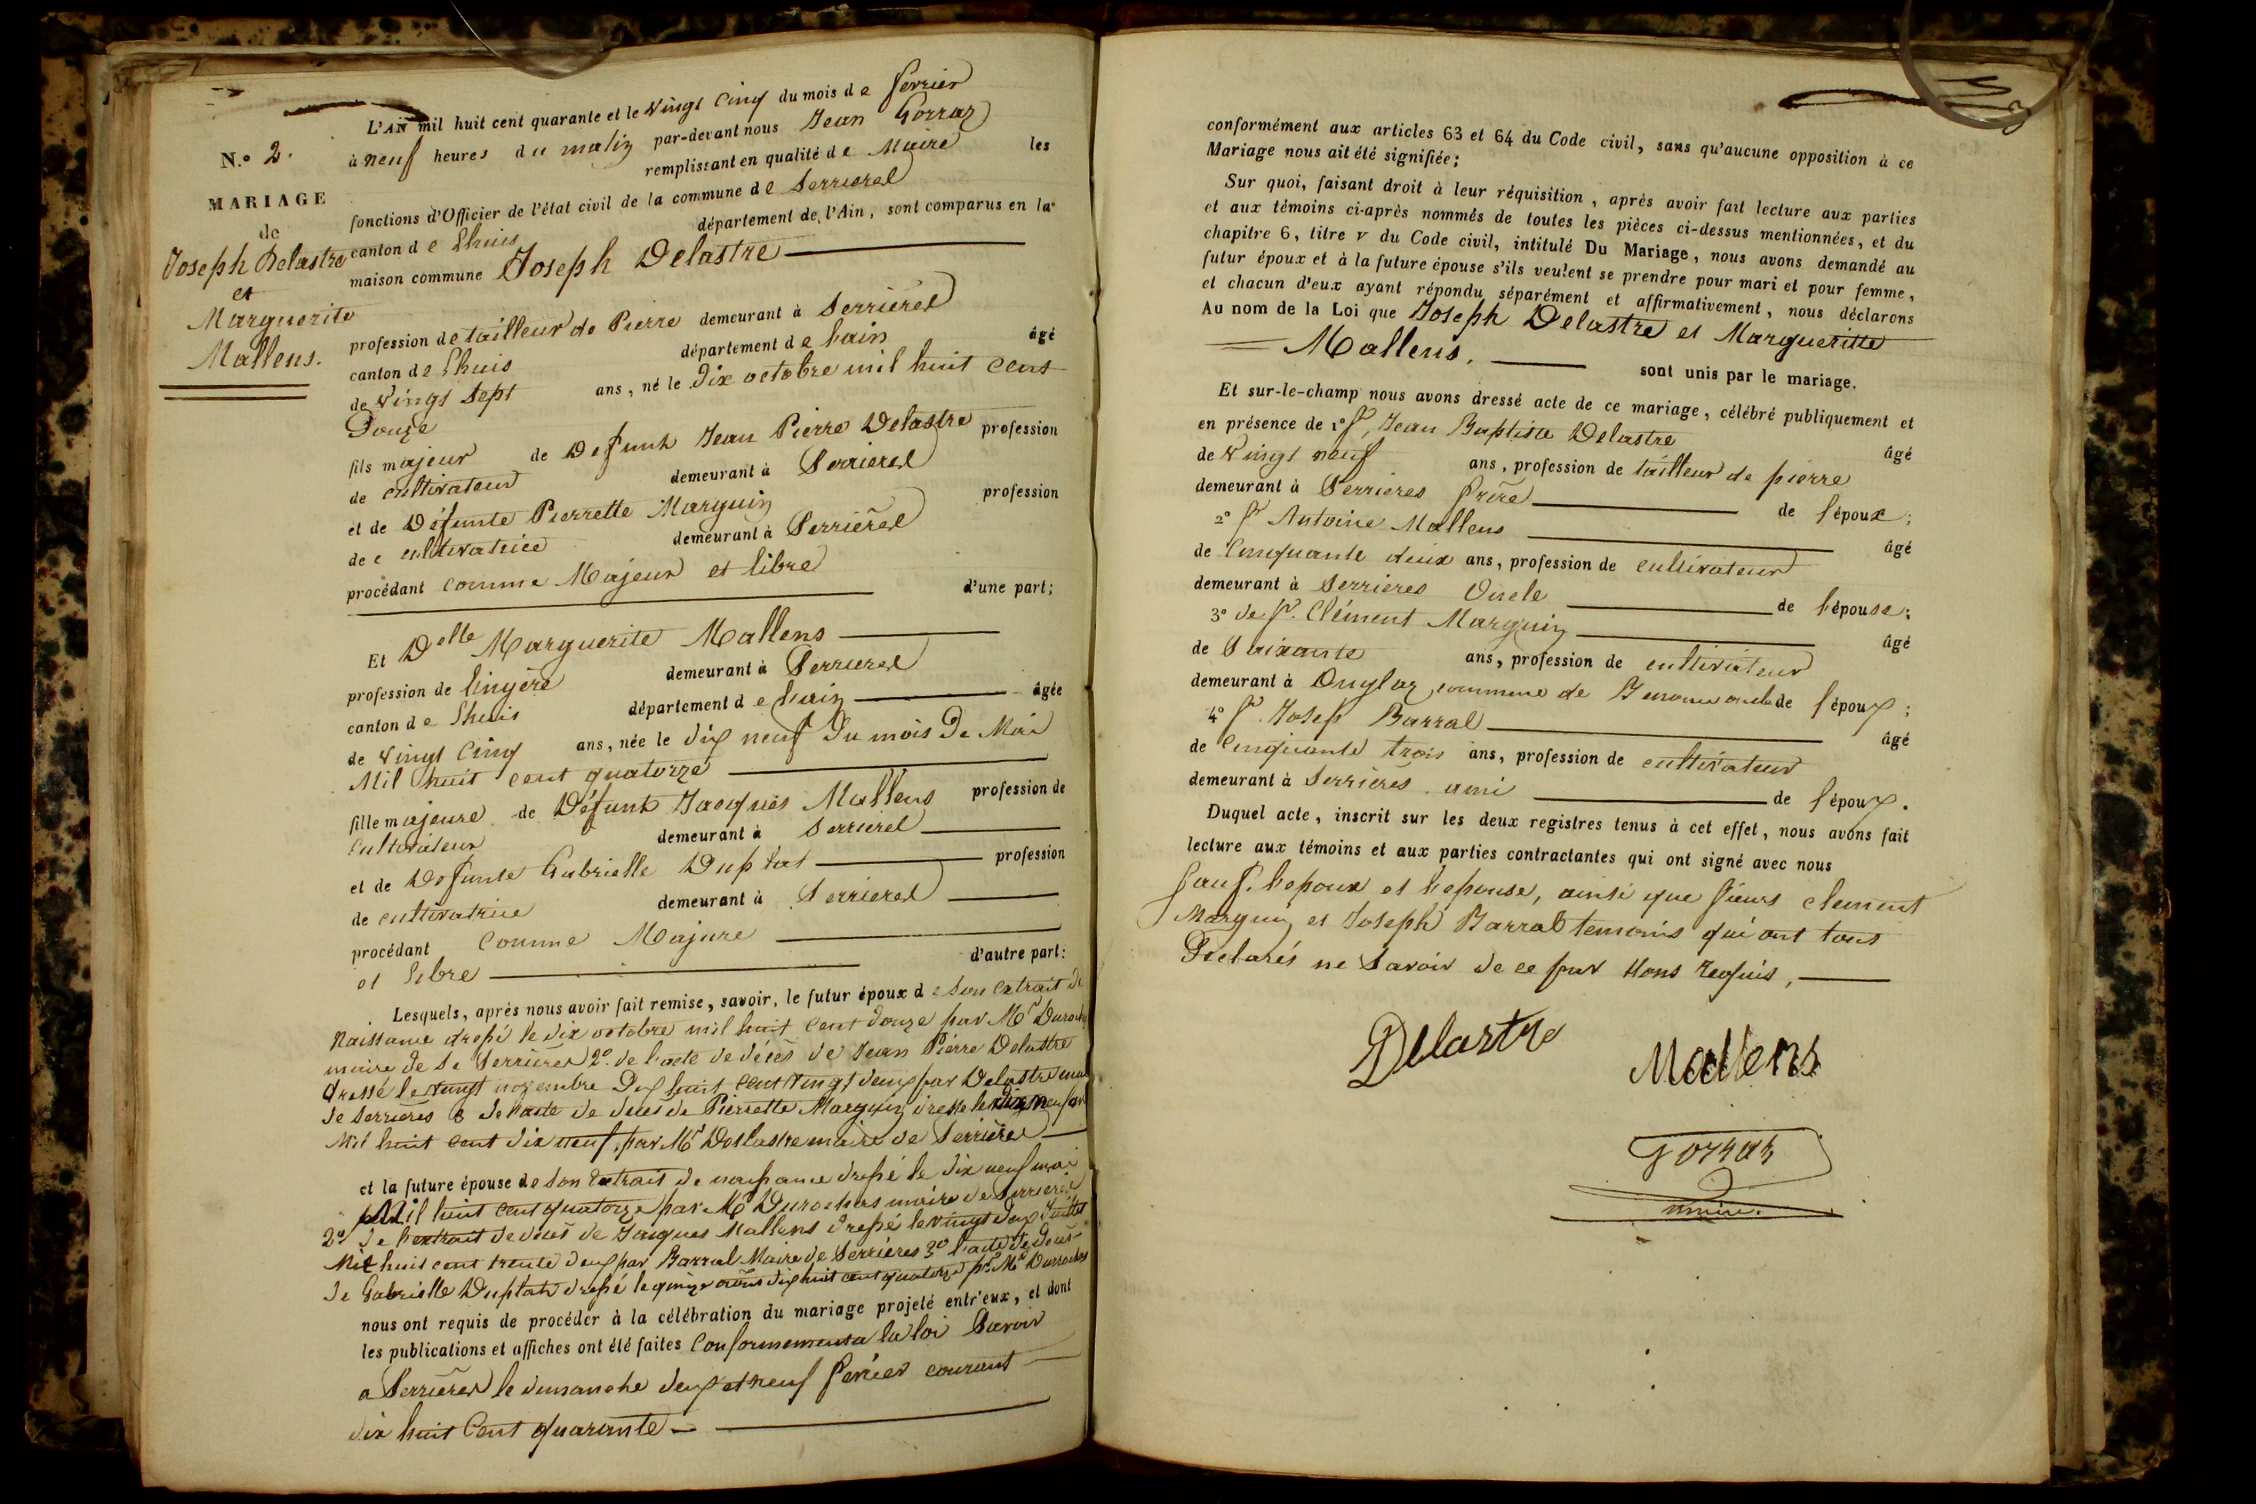 N.º 2.
MARIAGE
de
Joseph Delastre
et
Marguerite
Mallens.
L'AN mil huit cent quarante et le vingt cinq du mois de fevrier
à neuf heures du matin par-devant nous Jean Gorraz
remplissant en qualité de Maire les
fonctions d'Officier de l'état civil de la commune de Serrieres
canton de Lhuis département de l'Ain, sont comparus en la
maison commune Joseph Delastre
profession de tailleur de Pierre demeurant à Serrieres
canton de Lhuis département de Lain âgé
de vingt Sept ans, né le Dix octobre mil huit cent
Douze
fils majeur de Defunt Jean Pierre Delastre profession
de cultivateur demeurant à Serrieres
et de Défunte Pierrette Marguin profession
de cultivatrice demeurant à Serrieres
procédant comme Majeur et libre
d'une part;
Et Delle Marguerite Mallens
profession de lingère demeurant à Serrieres
canton de Lhuis département de Lain âgée
de vingt Cinq ans, née le dix neuf du mois De Mai
Mil huit cent quatorze
fille majeure de Défunt Jacques Mallens profession de
Cultivateur demeurant à Serrieres
et de Defunte Gabrielle Duplat profession
de cultivatrice demeurant à Serrieres
procédant Comme Majure
et libre d'autre part:
Lesquels, après nous avoir fait remise, savoir, le futur époux de son extrait de
Naissance dressé le dix octobre mil huit cent douze par Mr
maire de Serrieres 2º de l'acte de décès de Jean Pierre Delastre
dressé le vingt novembre Dix huit cent vingt deux par Delastre
de Serrieres 3 de l'acte de décès de Pierrette Marguin dressé le
Mil huit cent dix neuf, par Mr Dellastre maire de Serrieres
et la future épouse de son Extrait de naissance dressé le dix neuf mai
Mil huit cent quatorze par Mr Durochers maire de Serrieres
2º de l'extrait de décès de Jacques Mallens dressé le vingt deux Juillet
Mil huit cent trente deux par Barral Maire de Serrieres 3º l'acte de décès
de Gabrielle Duplat dressé le quinze dix huit cent quatorze pr Mr
nous ont requis de procéder à la célébration du mariage projeté entr'eux, et dont
les publications et affiches ont été faites Conformement a la loi Savoir
a Serrieres le dimanche deux et neuf fevrier courant
dix huit Cent quarante
conformément aux articles 63 et 64 du Code civil, sans qu'aucune opposition à ce
Mariage nous ait été signifiée;
Sur quoi, faisant droit à leur réquisition, après avoir fait lecture aux parties
et aux témoins ci-après nommés de toutes les pièces ci-dessus mentionnées, et du
chapitre 6, titre v du Code civil, intitulé Du Mariage, nous avons demandé au
futur époux et à la future épouse s'ils veulent se prendre pour mari et pour femme,
et chacun d'eux ayant répondu séparément et affirmativement, nous déclarons
Au nom de la Loi que Joseph Delastre et Margueritte
Mallens, sont unis par le mariage.
Et sur-le-champ nous avons dressé acte de ce mariage, célébré publiquement et
en présence de 1º Sr, Jean Baptiste Delastre âgé
de vingt neuf ans, profession de tailleur de pierre
demeurant à Serrieres frère de l'époux;
2º Sr Antoine Mallens âgé
de Cinquante deux ans, profession de cultivateur
demeurant à Serrieres Oncle de l'épouse;
3º de Sr. Clément Marguin âgé
de Soixante ans, profession de cultivateur
demeurant à commune de de l'époux;
4º Sr. Josep Barral âgé
de Cinquante trois ans, profession de cultivateur
demeurant à Serrieres ami de l'époux.
Duquel acte, inscrit sur les deux registres tenus à cet effet, nous avons fait
lecture aux témoins et aux parties contractantes qui ont signé avec nous
Sauf. lepoux et lepouse, ainsi que sieurs clement
Marguin et Joseph Barral temoins qui ont tous
Déclarés ne Savoir de ce par Nous requis,
Delastre
Mallens
gorraz
maire.